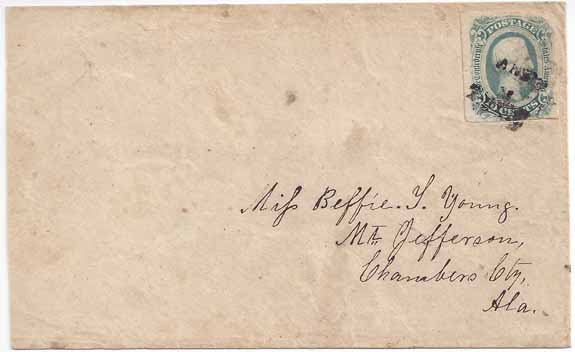 POSTAGE
Confederate
ANS
Miſs Beſsie T. Young.
Mt. Jefferson,
Chambers Cty,
Ala.